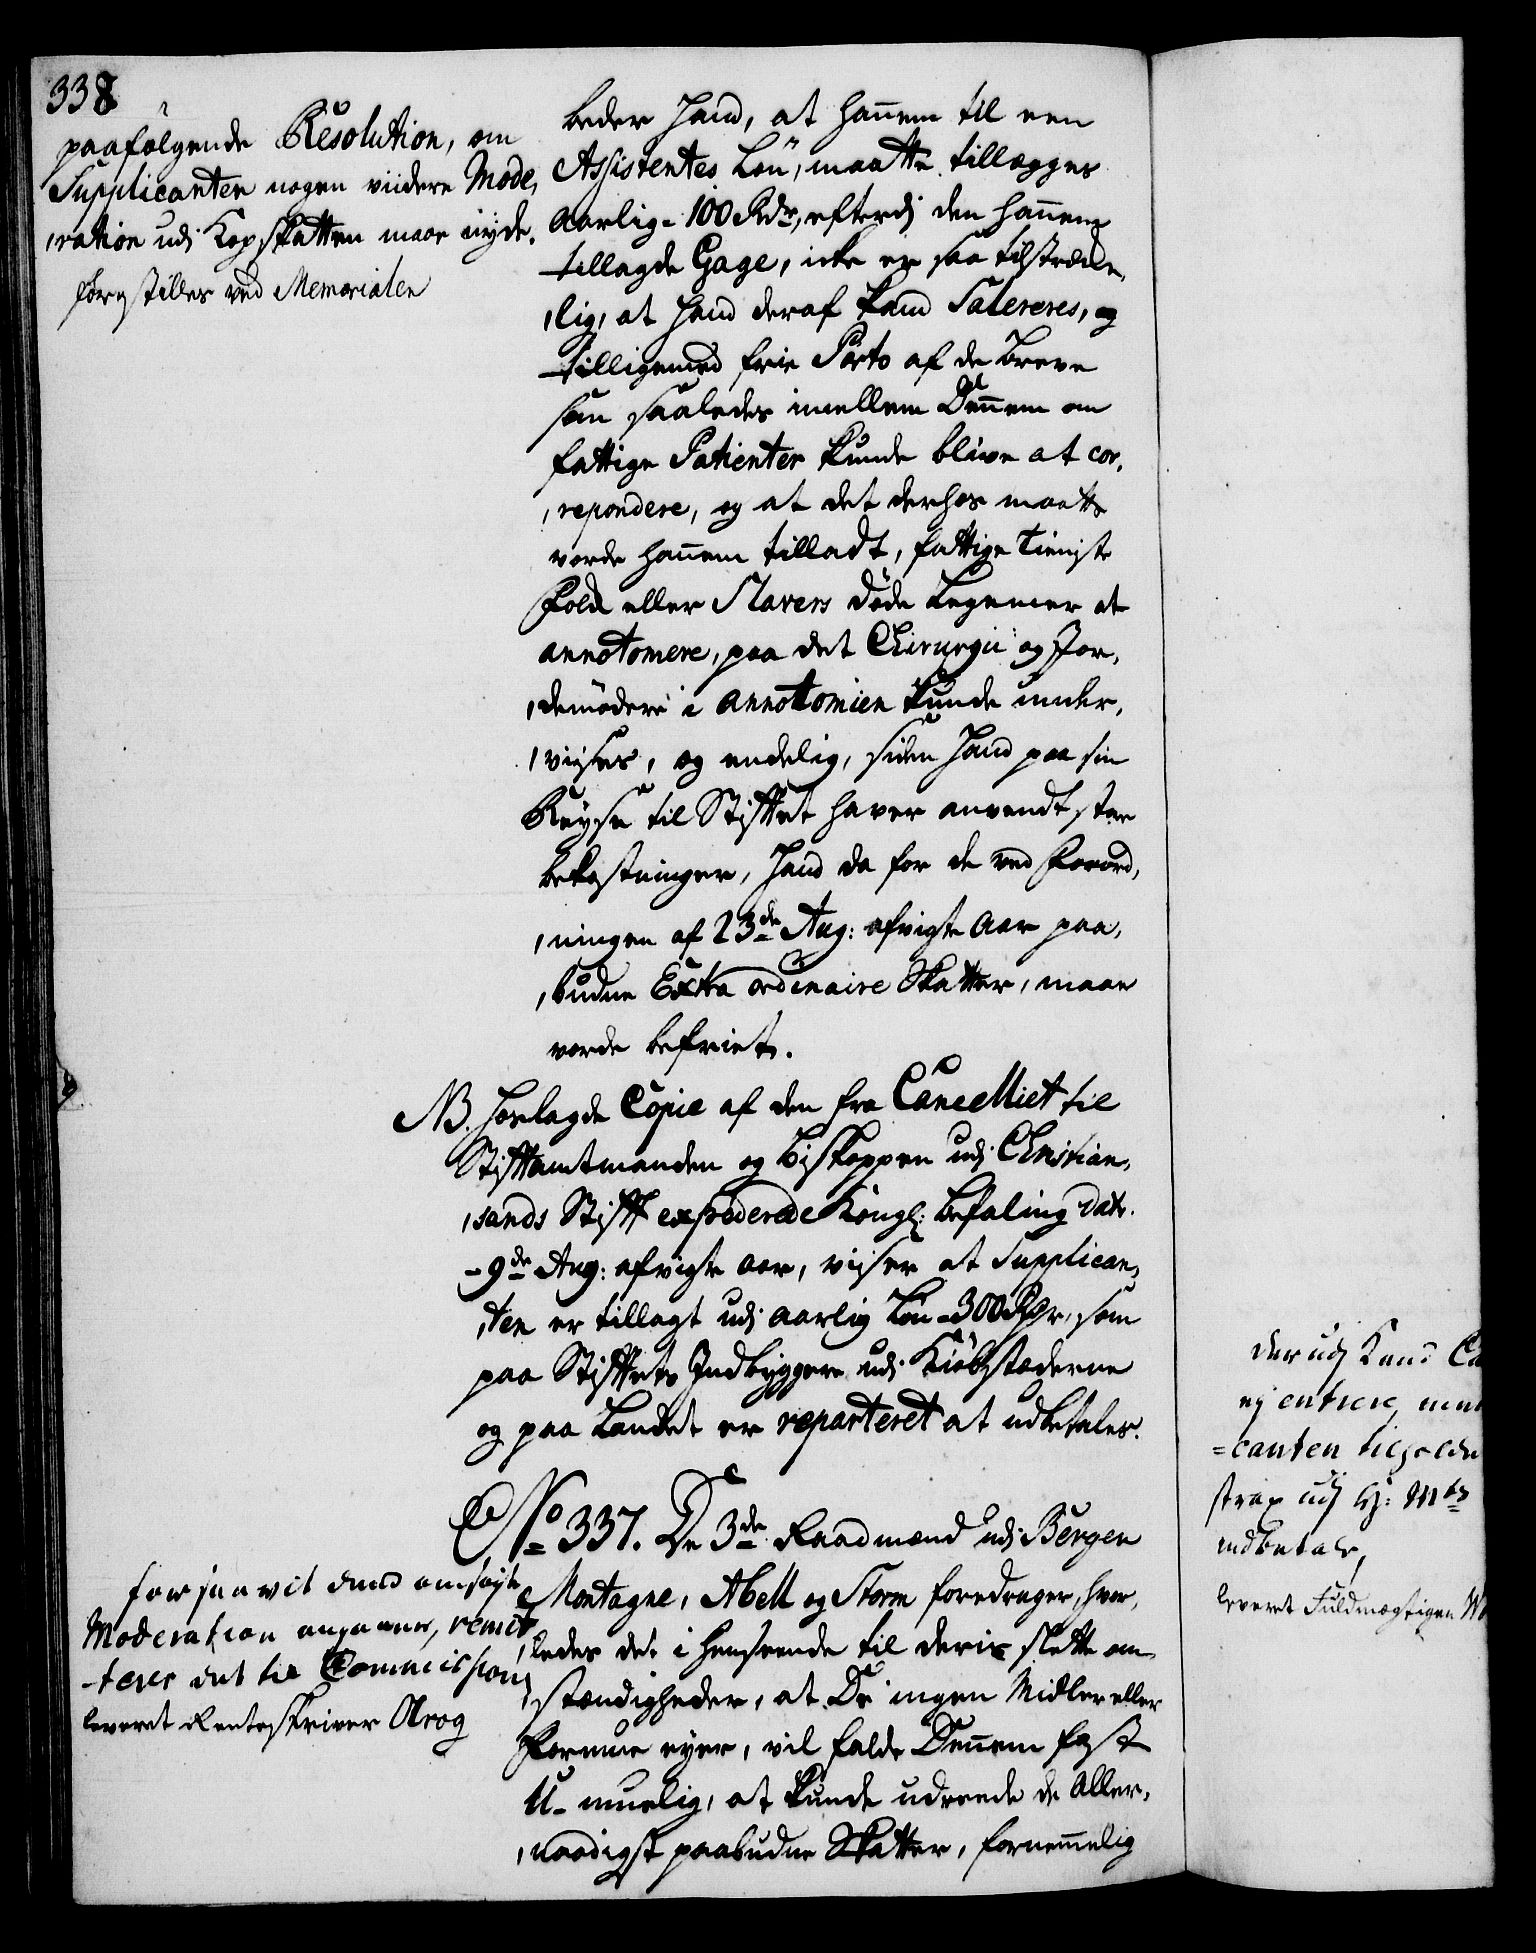 338
paafølgende Resolution, om
Supplicanten nogen viidere Mode,
,ration udj Kopskatten maae nyde.
forestilles ved Memorialen
beder Hand, at hannem til een
Assistentes Løn, maatte tillægges
Aarlig 100 Rdr, efterdj den hannem
tillagde Gage, icke er saa tilstrække,
,lig, at Hand deraf kand Saleres, og
tilligemed frie Porto af de Breve
som saaledes imellem Dennem om
fattige Patienter kunde blive at cor,
,repondere, og at det derhos maatte
vorde hannem tilladt, fattige Tieniste
Folk eller Slavers døde Legemer at
annotomere, paa det Chirurgii og Jor,
,demødere i annotomien kunde under,
,vises, og endelig, siden Hand paa sin
Reyse til Stiftet haver anvendt stor
bekostninger, Hand da for de ved Forord,
,ningen af 23de Aug: afvigte Aar paa,
,budne Extra ordinaire Skatter, maae
vorde befriet.
NB. hoslagde Copie af den fra Cancelliet til
Stiftamtmanden og Biskoppen udj Christian,
,sands Stift expederede Kongl: Befaling dat.
9de Aug: afvigte Aar, viser at Supplican,
,ten er tillagt udj aarlig Løn 300 Rdr, som
paa Stiftets Indbyggere udj Kiøbstæderne
og paa Landet er reparteret at udbetales.
No 337. De 3de Raadmænd udj Bergen
Montagne, Abell og Storm foredrager, hvor,
,ledes det i henseende til deris slette om,
,stændigheder, at De ingen Midler eller
Formue eyer, vil falde Dennem fast
U-muelig, at kunde udreede de Aller,
,naadigst paabudne Skatter, fornemmelig
for saa vit dend ansøgte
Moderation angaaer, remit
-teres det til Commission
leveret Renteskriver Krog
der udj Kand
ej entrere, men
=canten tilholden
strax udj H: Mts
indbetale,
leveret Fuldmægtigen